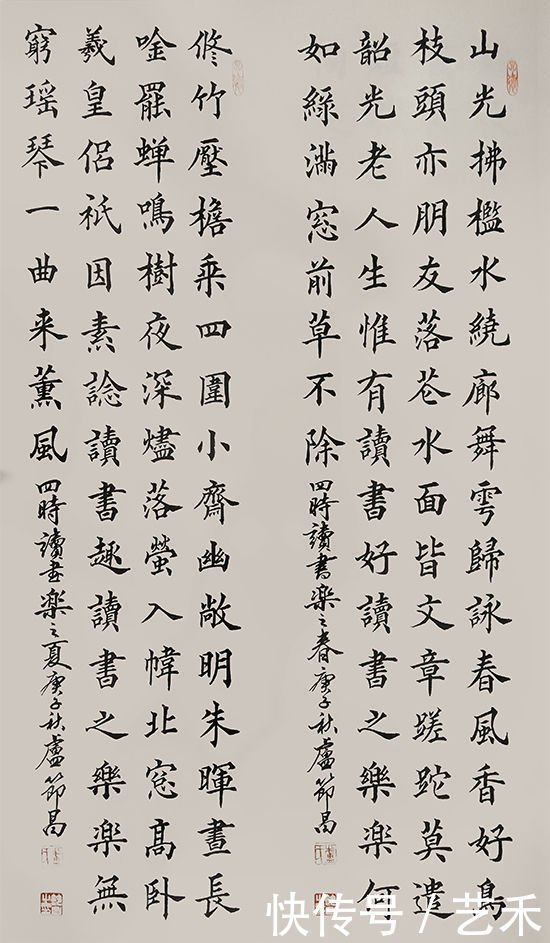 山光拂檻水繞廊舞雩歸詠春風香好鳥
枝頭亦朋友落花水面皆文章蹉跎莫遣
韶光老人生惟有讀書好讀書之樂樂何
如絲滿窓前草不除 四時讀書樂之春庚子秋盧節昌
修竹壓檐桒四圍小齋幽敞明朱暉晝長
唫罷蟬鳴樹夜深燼落螢入幃北窓高卧
羲皇侶祇因素諗讀書趣讀書之樂樂無
窮瑤琴一曲来薰風 四時讀書樂之夏庚子秋盧節昌
快传号 / 艺禾